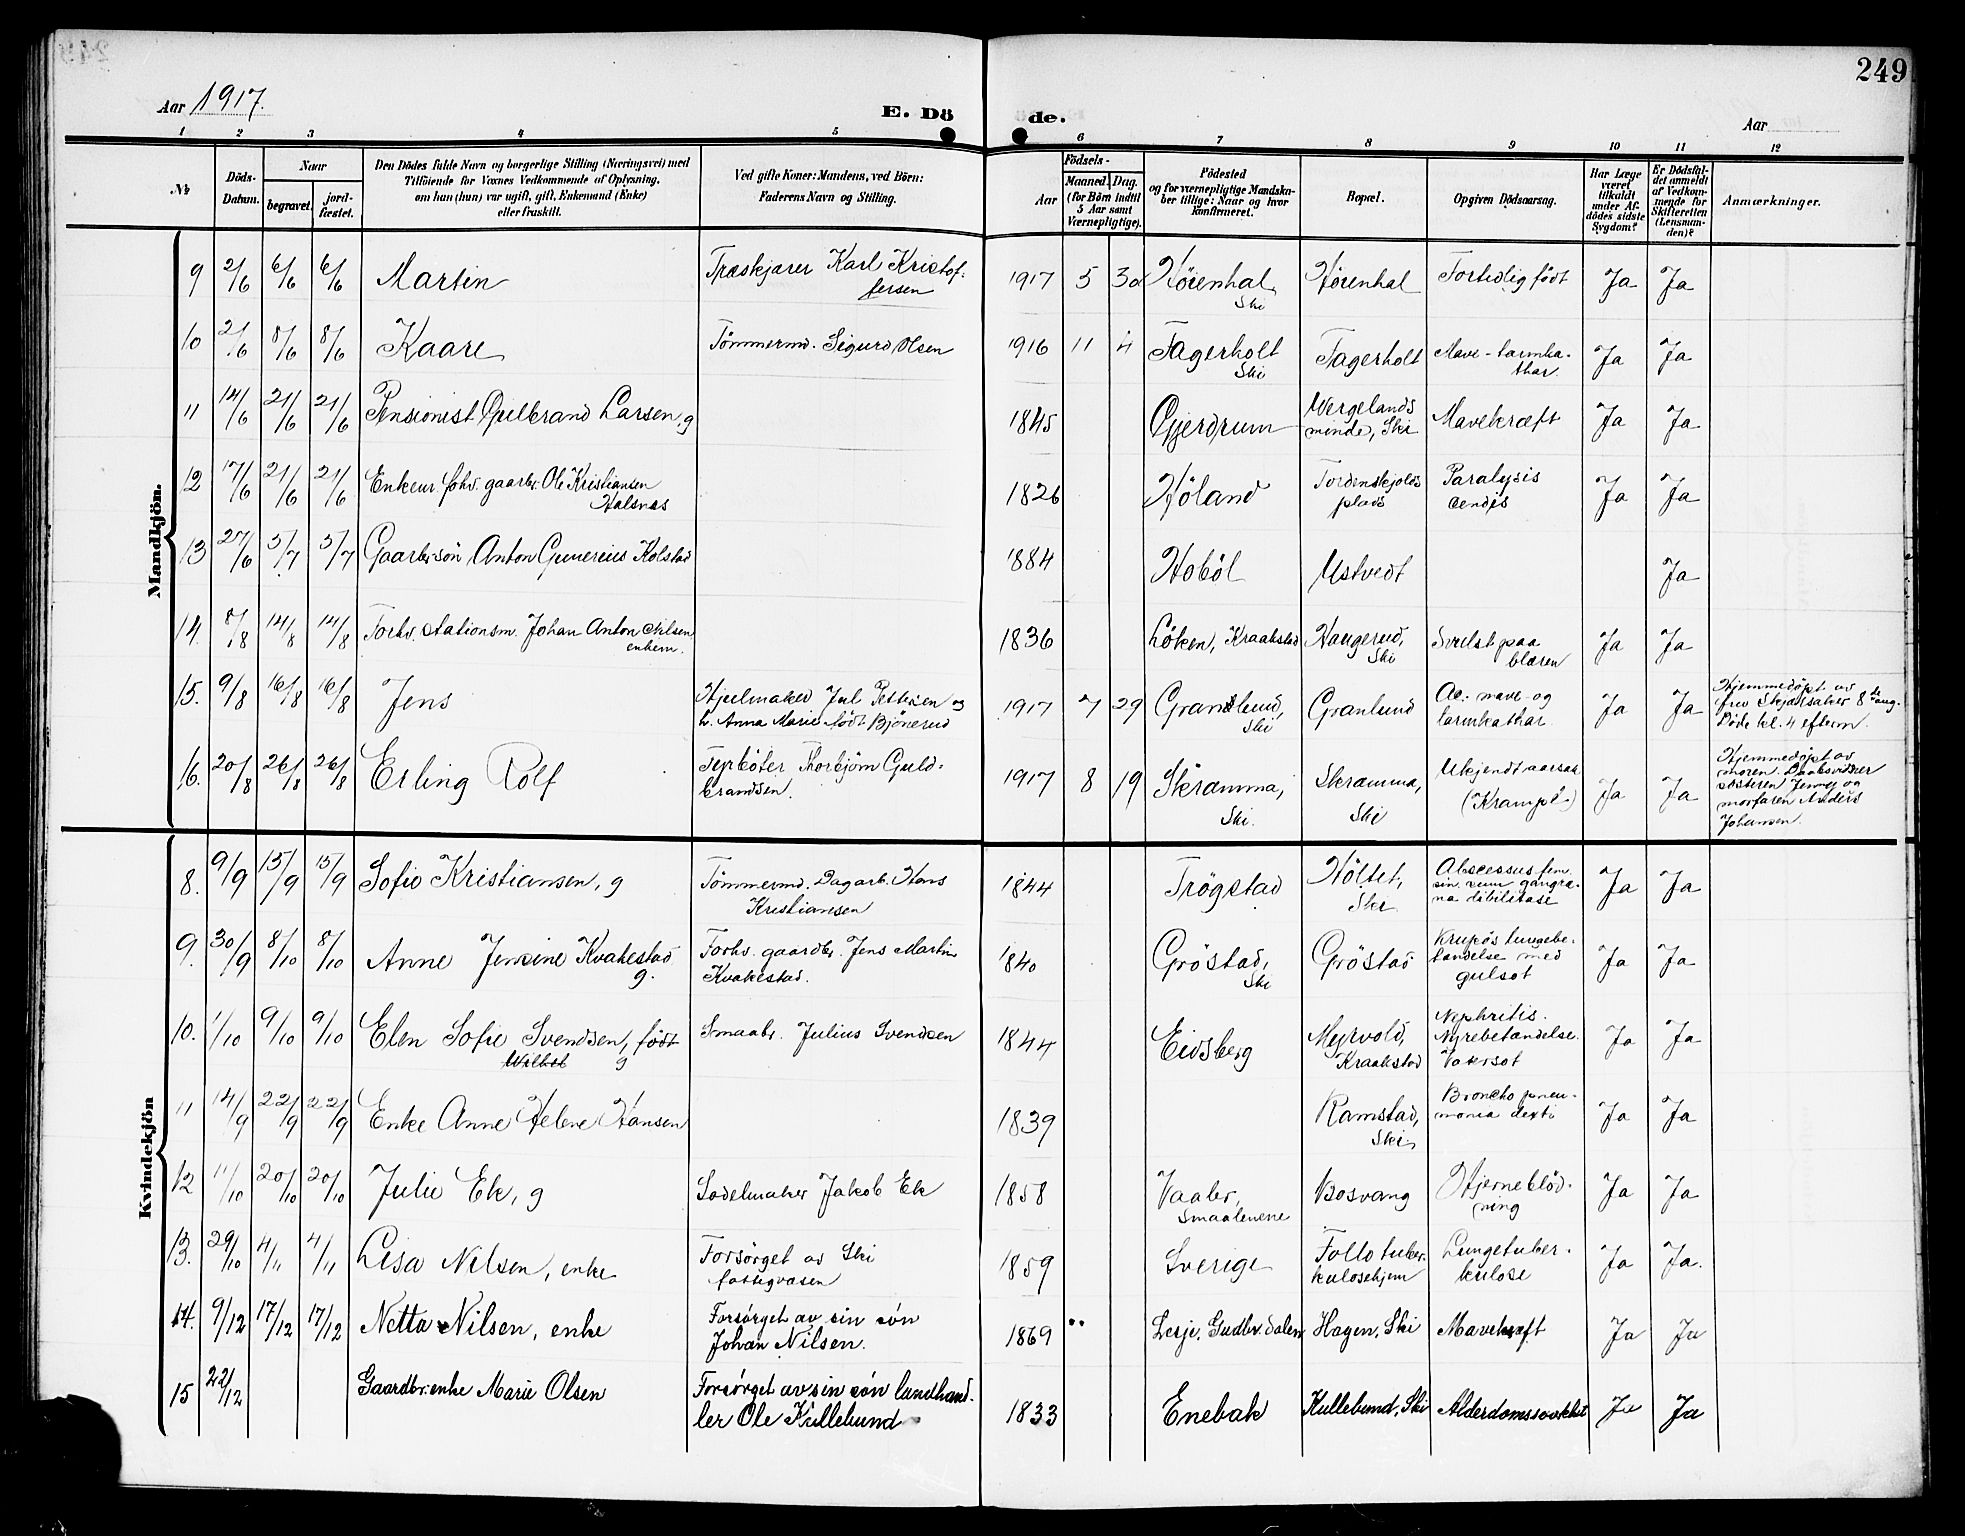 249
Aar 1917.
E. Dö
de.
Aar
1 2 3 4 5 6 7 8 9 10 11 12
№
Döds-
Datum.
Naar
begravet.
jord-
fæstet.
Den Dödes fulde Navn og borgerlige Stilling (Næringsvei) med
Tilföiende for Voxnes Vedkommende af Oplysning,
om hun (hun) var ugift, gift, Enkemand (Enke)
eller fraskilt.
Ved gifte Koner: Mandens, ved Börn:
Faderens Navn og Stilling.
Födsels-
Aar
Maaned. Dag.
(for Börn indtil
5 Aar samt
Værnepligtige).
Födested
og for værnepligtige Mandska-
ber tillige: Naar og hvor
konfirmeret.
Bopæl.
Opgiven Dödsaarsag.
Har Læge
været
tilkaldt
under Af-
dödes sidste
Sygdom?
Er Dödsfal-
det anmeldt
af Vedkom-
mende for
Skifteretten
(Lensman-
den)?
Anmærkninger.
Mandkjön.
9 2/6 6/6 6/6 Martin Træskjærer Karl Kristof-
fersen
1917 5 30 Hörenhal, Hörenhal Fortidlig födt Ja Ja
Ski
10 2/6 8/6 8/6 Kaare Tömmermd. Sigurd Olsen 1916 11 4 Fagerholt Fagerholt Mave-tarmka- Ja Ja
Ski thar.
11 14/6 21/6 21/6 Pensionist Gulbrand Larsen, g 1845 Gjerdrum Wergelands Mavekræft Ja Ja
minde, Ski
12 17/6 21/6 21/6 Enkem. fohv. gaarbr. Ole Kristiansen
Halsnæs
1826 Höland Tordenskjolds Paralysis Ja Ja
plads
13 27/6 5/7 5/7 Gaarbr.sön Anton Gunerius Kolstad 1884 Haböl Ustvedt Ja
14. 8/8 14/8 14/8 Forhv. stationsm. Johan Anton Nilsen
enkem.
1836 Löken, Kraakstad Haugerud, Svulst paa Ja Ja
Ski blæren
15. 9/8 16/8 16/8 Jens Hjulmaker Jul Pettersen og
h. Anna Marie födt Björnerud
1917 7 29 Granslund, Granlund Ac. mave- og Ja Ja
Ski tarmkathar.
Hjemmedöpt av
fru Skjærsaker 8de aug.
Döde kl. 4 efterm.
16. 20/8 26/8 26/8 Erling Rolf Fyrböter Thorbjörn Guld-
brandsen.
1917 8 19 Skramma, Skramma, Ukjendt aarsak Ja Ja
Ski. Ski (Krampe)
Hjemmedöpt av
moren. Daabsvidner
søsteren Jenny og
morfaren Anders
Johansen.
Kvindekjön
8. 9/9 15/9 15/9 Sofie Kristiansen, g Tömmermd. Dagarb. Hans
Kristiansen
1844 Trögstad Höltet, Abscessus fem. Ja Ja
Ski sin. cum gangræ-
na debilitase
9. 30/9 8/10 8/10 Anne Jensine Kvakestad Forhv. gaardbr. Jens Martin
g. Kvakestad.
1840 Gröstad, Gröstad Krupös lungebe- Ja Ja
Ski tændelse med
gulsot
10. 1/10 9/10 9/10 Elen Sofie Svendsen, födt Smaabr. Julius Svendsen
g
1844 Eidsberg Myrvold, Nephritis. Ja Ja
Kraakstad Nyrebetændelse.
Vatersot
11 14/9 22/9 22/9 Enke Anne Helene Hansen 1839 Ramstad, Broncho pneu- Ja Ja
Ski, monia dext.
12 11/10 20/10 20/10 Julie Ek, g Sadelmaker Jakob Ek 1858 Vaaler, Bosvang Hjerneblöd- Ja Ja
Smaalenene ning
13. 29/10 4/11 4/11 Lisa Nilsen, enke Forsörget av Ski
fattigvæsen
1859 Sverige Follo tuber- Lungetuber- Ja Ja.
kulosehjem kulose
14. 9/12 17/12 17/12 Netta Nilsen, enke Forsörget av sin sön
Johan Nilsen.
1869 " Lesje, Gudbr.dalen Hagen, Ski Mavekræft Ja Ja
15 22/12 Gaardbr.enke Marie Olsen Forsörget av sin sön landhand-
ler Ole Kullebund
1833 Enebak Kullebund, Ski Alderdomssvakhet Ja Ja